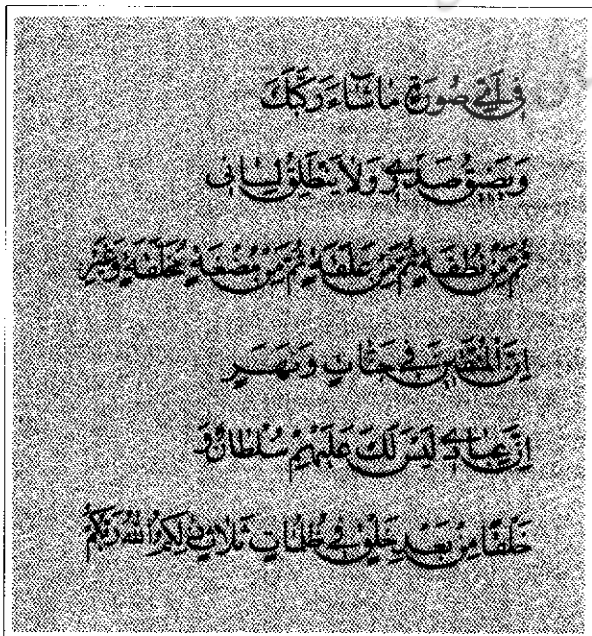 في أي صورة ما شاء ركبك
ويضيق صدري ولا ينطلق لساني
ثم من نطفة ثم من علقة ثم من مضغة مخلقة وغير
إن المتقين في جنات ونهر
إن عبادي ليس لك عليهم سلطان و
خلقا من بعد خلق في ظلمات ثلاث ذلكم الله ربكم